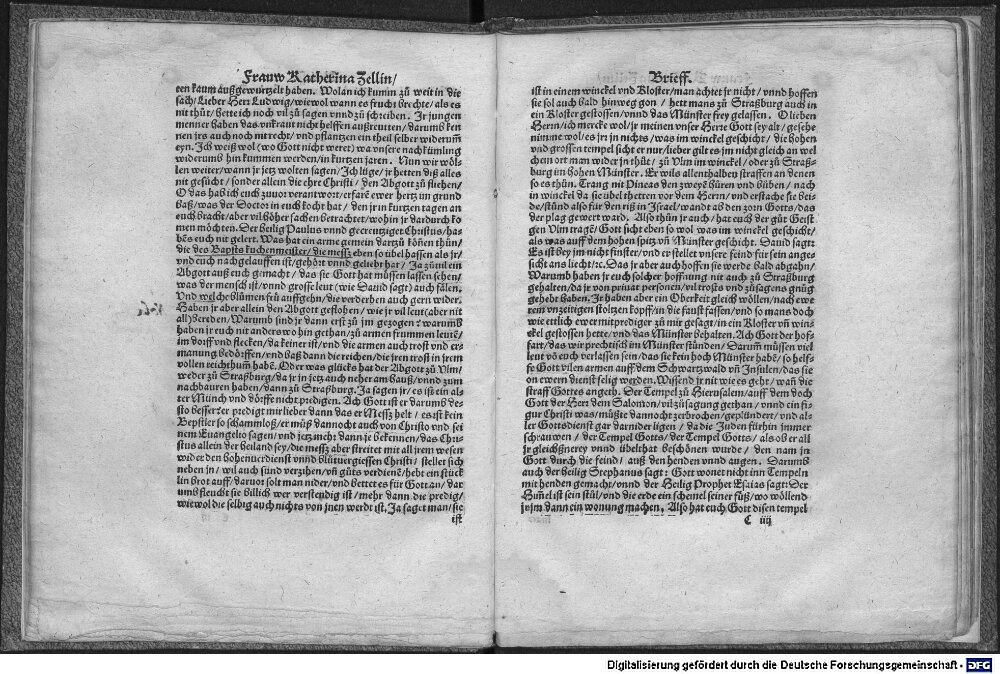 Frauw Katherina Zellin/
een kaum außgewurzelt haben. Wolan ich kumm zů weit in die
sach/ Lieber Herr Ludwig/ wiewol wann es frucht brechte/ als es
nit thůt/ hette ich noch vil zů sagen vnnd zů schreiben. Ir jungen
menner haben das vnkraut nicht helffen außreutten/ darumb ken
nen jrs auch noch nit recht/ vnd pflantzen ein theil selber widerum̃
eyn. Ich weiß wol (wo Gott nicht weret) wa vnsere nachkumling
widerumb hin kummen werden/ in kurtzen jaren. Nun wir wöl-
len weiter/ wann jr jetz wolten sagen/ Ich lüge/ jr hetten diß alles
nit gesůcht/ sonder allein die ehre Christi/ den Abgott zů fliehen/
O das hab ich euch zuuor verantwort/ erfarē ewer hertz im grund
baß/ was der Doctor in euch kocht hat/ den jr in kurtzen tagen an
euch bracht/ aber vil höher sachen betrachtet/ wohin jr dardurch ko
men möchten. Der heilig Paulus vnnd gecreutziget Christus/ ha-
bēs euch nit gelert. Was hat ein arme gemein dartzů köñen thůn/
die des Bapsts kuchenmeister/ die messz eben so übel hassen als jr/
vnd euch nachgelauffen ist/ gehört vnnd geliebt hat/ Ja zůuil ein
Abgott auß euch gemacht/ das sie Gott hat müssen lassen sehen/
was der mensch ist/ vnnd grosse leut (wie Dauid sagt) auch fälen.
Vnd welche blůmen frů auffgehn/ die verderben auch gern wider.
Haben jr aber allein den Abgott geflohen/ wie jr vil leut (aber nit
all) bereden/ Warumb sind jr dann erst zů jm gezogen? warumb
haben jr euch nit anders wo hin gethan/ zů armen frummen leutē/
im dorff vnd flecken/ da keiner ist/ vnd die armen auch trost vnd er-
manung bedörffen/ vnd baß dann die reichen/ die jren trost in jrem
vollen reichthum̃ habē. Oder was glücks hat der Abgott zů Vlm/
weder zů Straßburg/ da jr in jetz auch neher am hauß/ vnnd zum
nachbauren haben/ dann zů Straßburg. Ja sagen jr/ es ist ein al-
ter Münch vnd dörffe nicht predigen. Ach Gott ist er darumb de-
sto besser? er predigt mir lieber dann das er Messz helt/ es ist kein
Bepstler so schammloß/ er můß dannocht auch von Christo vnd sei
nem Euangelio sagen/ vnd jetz meht dann je bekennen/ das Chri-
stus allein der heiland sey/ die messz aber streitet mit all jrem wesen
wider den hohen verdienst vnnd blůtuergiessen Christi/ stellet sich
neben jn/ wil auch sünd verzihen/ vñ gůts verdienē/ hebt ein stück
lin brot auff/ daruor solt man nider/ vnd bettet es für Gott an/ dar
umb fleucht sie billich wer verstendig ist/ mehr dann die predig/
wiewol die selbig auch nichts von jnen werdt ist. Ja saget man/ sie
ist
Brieff.
ist in einem winckel vnd Kloster/ man achtet jr nicht/ vnnd hoffen
sie sol auch bald hinweg gon/ hett mans zů Straßburg auch in
ein Kloster gestossen/ vnnd das Münster frey gelassen. O lieben
Herrn/ ich mercke wol/ jr meinen vnser Herre Gott sey alt/ gesehe
nimme wol/ es jrr jn nichts/ was im winckel geschicht/ die hohen
vnd grossen tempel sicht er nur/ lieber gilt es jm nicht gleich an wel
chem ort man wider jn thůt/ zů Vlm im winckel/ oder zů Straß-
burg im hohen Münster. Er wils allenthalben straffen an denen
so es thůn. Trang nit Pineas den zweyē hůren vnd bůben/ nach
in winckel da sie übel thetten vor dem Herrn/ vnd erstache sie bei-
de/ stůnd also für den riß in Israel/ wandt ab den zorn Gotts/ das
der plag gewert ward. Also thůn jr auch/ hat euch der gůt Geist
gen Vlm tragē/ Gott sicht eben so wol was im winckel geschicht/
als was auff dem hohen spitz vñ Münster geschicht. Dauid sagt:
Es ist bey jm nicht finster/ vnd er stellet vnsere feind für sein ange-
sicht ans liecht/ ꝛc. Das jr aber auch hoffen sie werde bald abgahn/
Warumb haben jr euch solcher hoffnung nit auch zů Straßburg
gehalten/ da jr von priuat personen/ vil trosts vnd zůsagens gnůg
gehebt haben. Jr haben aber ein Oberkeit gleich wöllen/ nach ewe
rem vnzeitigen stoltzen kopff/ in die faust fassen/ vnd so mans doch
wie ettlich ewer mitprediger zů mir gesagt/ in ein Kloster vñ win-
ckel gestossen hette/ vnd das Münster behalten. Ach Gott der hof-
fart/ das wir prechtisch im Münster stünden/ Darum̃ müssen viel
leut vō euch verlassen sein/ das sie kein hoch Münster habē/ so helf-
fe Gott vilen armen auff dem Schwartzwald vñ Insulen/ das sie
on ewern dienst selig werden. Wissend jr nit wie es geht/ wañ die
straff Gottes angeth. Der Tempel zů Hierusalem/ auff dem doch
Gott der Herr dem Salomon/ vil zůsagung gethan/ vnnd ein fi-
gur Christi was/ můßte dannocht zerbrochen/ geplündert/ vnd al-
ler Gottsdienst gar darnider ligen/ da die Juden fürhin immer
schrauwen/ der Tempel Gotts/ der Tempel Gotts/ als ob er all
jr gleichßnerey vnnd übelthat beschönen wurde/ den nam in
Gott durch die feind/ auß den henden vnnd augen. Darumb
auch der heilig Stephanus sagt: Gott wonet nicht inn Tempeln
mit henden gemacht/ vnnd der Heilig Prophet Esaias sagt: Der
Him̃el ist sein stůl/ vnd die erde ein schemel seiner füß/ wo wöllend
jr jm dann ein wonung machen. Also hat euch Gott disen tempel
C iiij
Digitalisierung gefördert durch die Deutsche Forschungsgemeinschaft - DFG